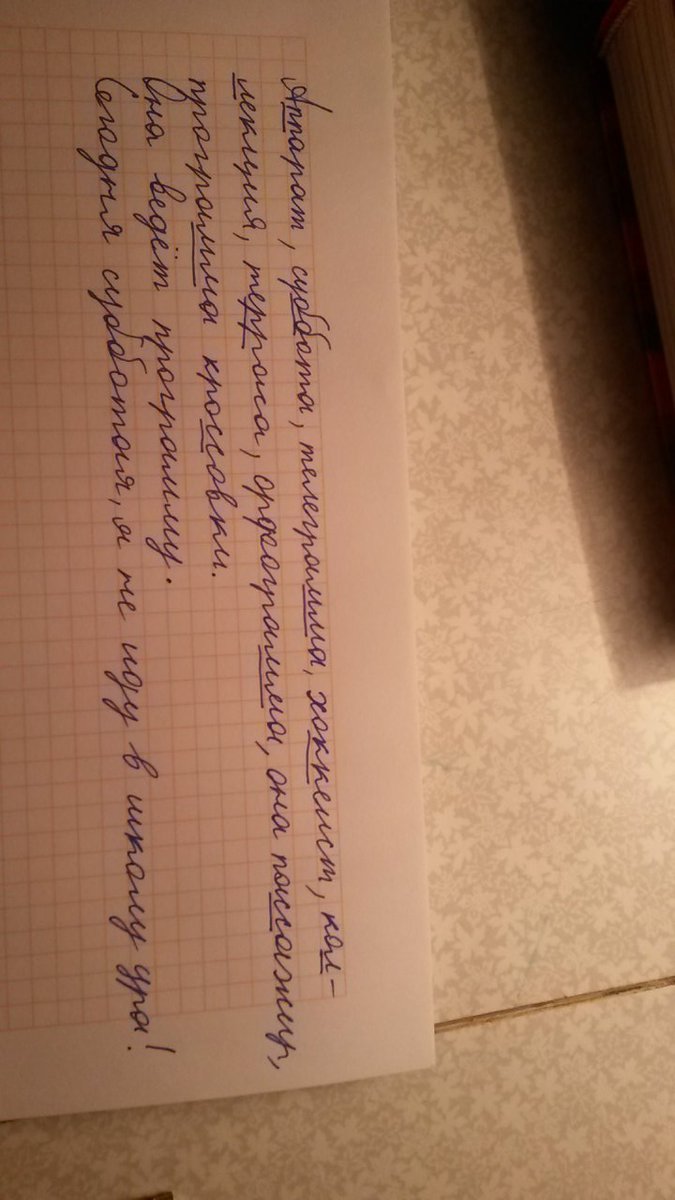 Аппарат, суббота, телеграмма, хоккеист, кол-
лекция, терраса, орфограмма, она пассажир,
программа кроссовки.
Она ведёт программу.
Сегодня субботая, я не иду в школу ура!